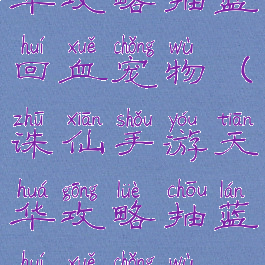 华攻略抽蓝
huí xuě chǒng wù
回血宠物（
zhū xiān shǒu yóu tiān
诛仙手游天
huá gōng lüè chōu lán
华攻略抽蓝
huí xuě chǒng wù